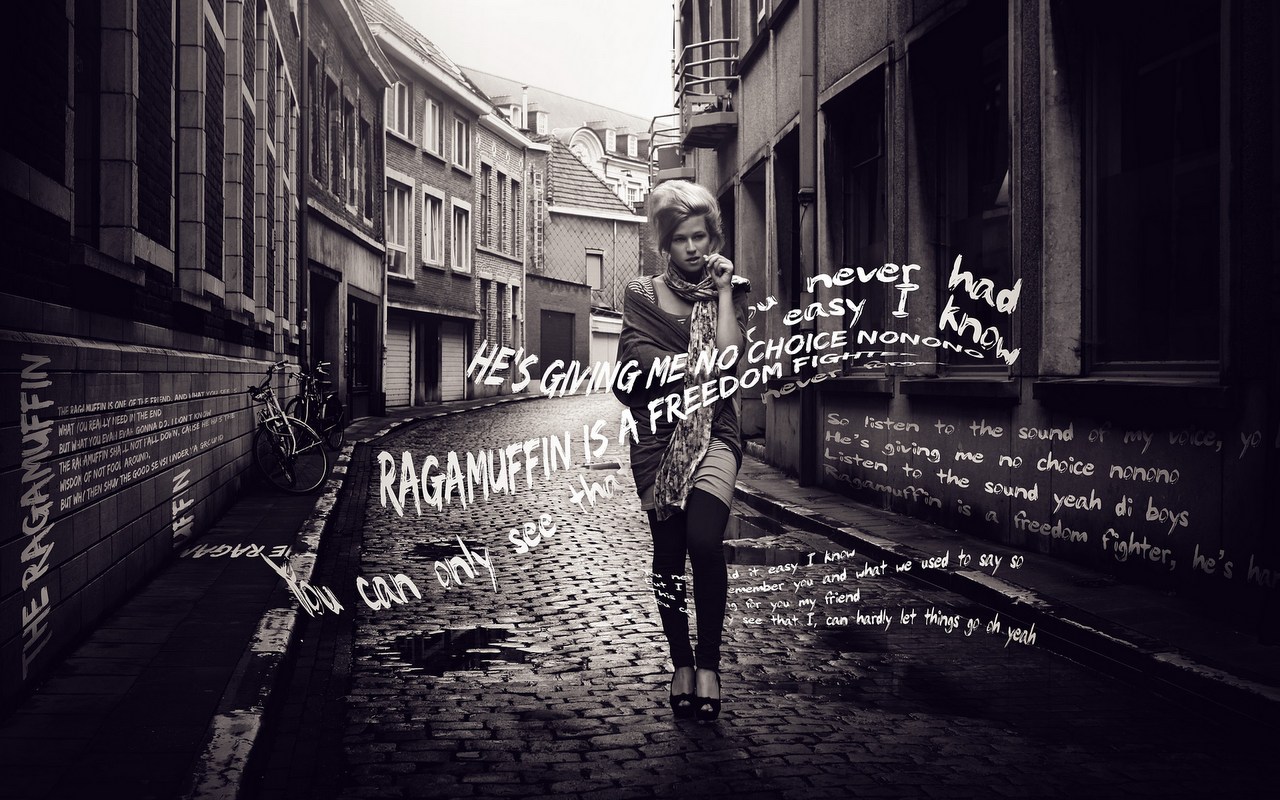 THE RAGAMUFFIN
THE RAGAMUFFIN IS ONE OF THE FRIEND, AND WHAT YOU SEE
WHAT YOU REALLY NEED IN THE END
BUT WHAT YOU EVAH EVAH GONNA DO, I DON'T KNOW
THE RAGAMUFFIN SHALL NOT FALL DOWN, CAUSE HE
WISDOM OF NOT FOOL AROUND,
BUT WHY THEN SHOW THE GOOD UNDER GROUND
UFFIN
THE RAGAM
ou never had
easy I know
HE'S GIVING ME NO CHOICE NONONO
RAGAMUFFIN IS A FREEDOM FIGHTER
never
You can only see tha
So listen to the sound of my voice, yo
He's giving me no choice nonono
Listen to the sound yeah di boys
Ragamuffin is a freedom fighter, he's ha
d it easy I know
but I emember you and what we used to say so
this g for you my friend
you ca y see that I, can hardly let things go oh yeah